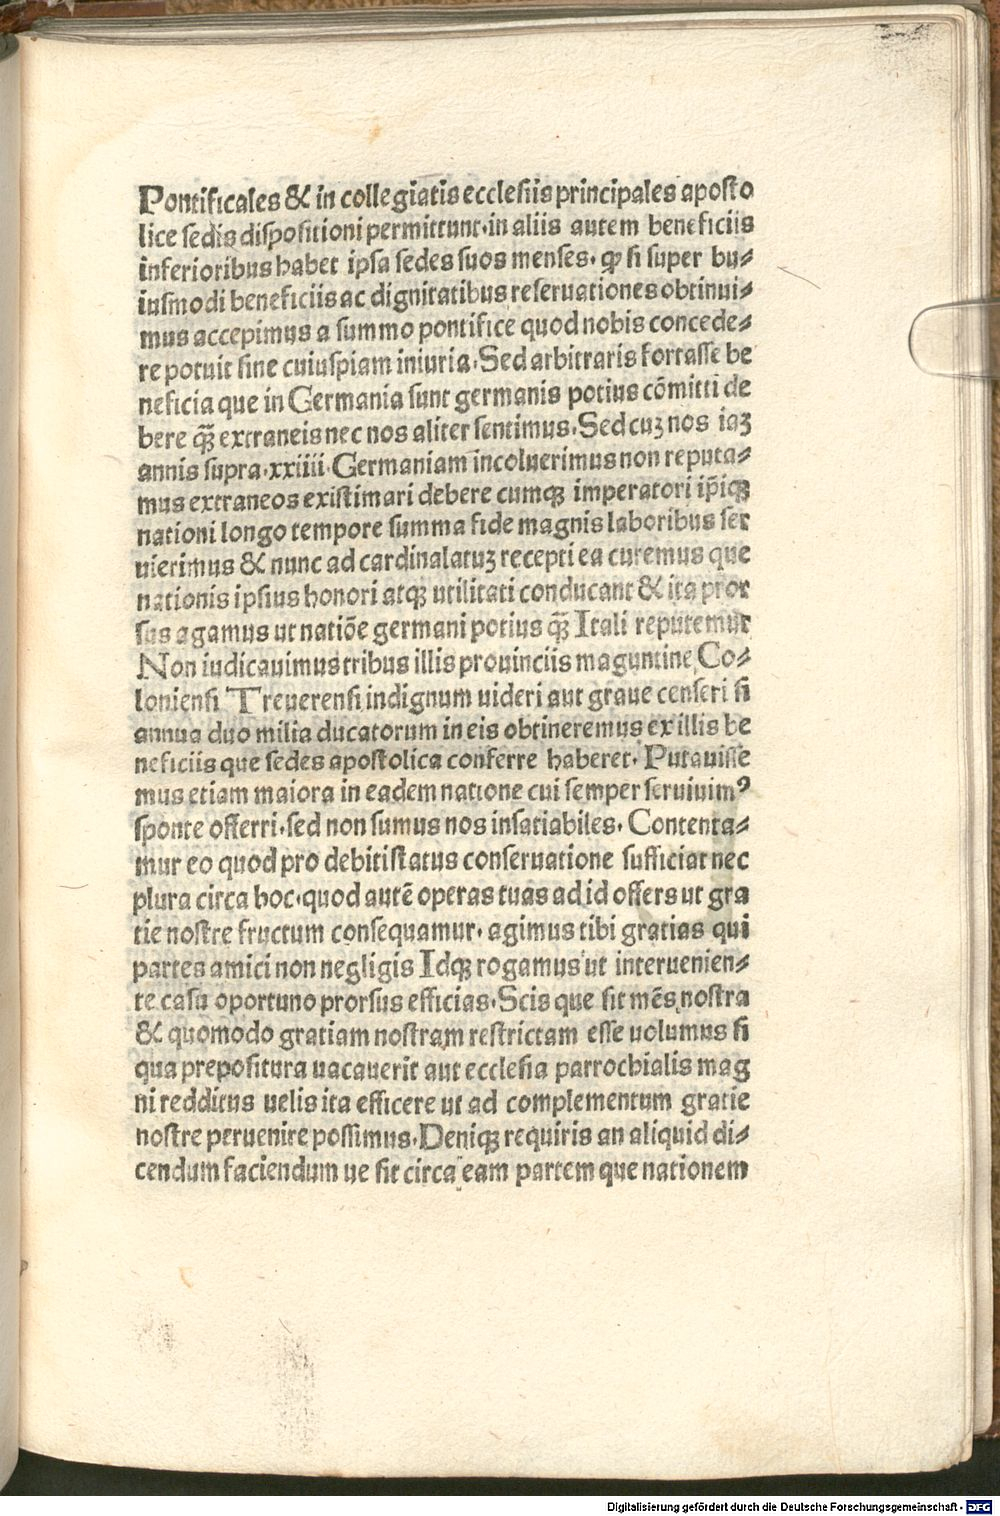 Pontificales & in collegiatis ecclesiis principales aposto
lice sedis dispositioni permittunt·in aliis autem beneficiis
inferioribus habet ipsa sedes suos menses· ꝙ si super hu⸗
iusmodi beneficiis ac dignitatibus reseruationes obtinui⸗
mus accepimus a summo pontifice quod nobis concede⸗
re potuit sine cuiuspiam iniuria·Sed arbitraris fortasse be
neficia que in Germania sunt germanis potius cōmitti de
bere q̄ꝫ extraneis nec nos aliter sentimus·Sed cuꝫ nos iaꝫ
annis supra·xxiiii·Germaniam incoluerimus non reputa⸗
mus extraneos existimari debere cumqꝫ imperatori ip̄iqꝫ
nationi longo tempore summa fide magnis laboribus ser
uierimus & nunc ad cardinalatuꝫ recepti ea curemus que
nationis ipsius honori atqꝫ utilitati conducant & ita pror
sus agamus ut natiōe germani potius q̄ꝫ Itali reputemur
Non iudicauimus tribus illis prouinciis maguntine Co⸗
loniensi Treuerensi indignum uideri aut graue censeri si
annua duo milia ducatorum in eis obtineremus ex illis be
neficiis que sedes apostolica conferre haberet· Putauisse
mus etiam maiora in eadem natione cui semper seruiuimꝰ
sponte offerri·sed non sumus nos insatiabiles· Contenta⸗
mur eo quod pro debiti status conseruatione sufficiat nec
plura circa hoc·quod autē operas tuas ad id offers ut gra
tie nostre fructum consequamur· agimus tibi gratias qui
partes amici non negligis Idqꝫ rogamus ut interuenien⸗
te casu oportuno prorsus efficias·Scis que sit mēs nostra
& quomodo gratiam nostram restrictam esse uolumus si
qua prepositura uacauerit aut ecclesia parrochialis mag
ni redditus uelis ita efficere ut ad complementum gratie
nostre peruenire possimus·Deniqꝫ requiris an aliquid di⸗
cendum faciendum ue sit circa eam partem que nationem
Digitalisierung gefördert durch die Deutsche Forschungsgemeinschaft - DFG